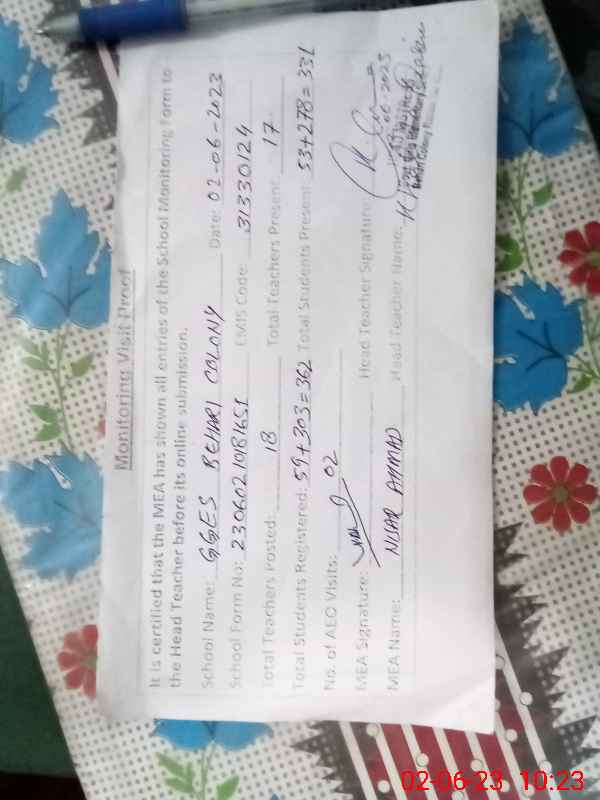 Monitoring Visit Proof
It is certified that the MEA has shown all entries of the School Monitoring Form to
the Head Teacher before its online submission.
School Name: GGES BEHARI COLONY Date: 02-06-2023
School Form No: 2306021081651 EMIS Code: 31330124
Total Teachers Posted: 18 Total Teachers Present: 17
Total Students Registered: 59+303=362 Total Students Present: 53+278=331
No. of AEO Visits: 02
MEA Signature: Head Teacher Signature:
MEA Name: NISAR AHMAD Head Teacher Name:
02-06-23 10:23